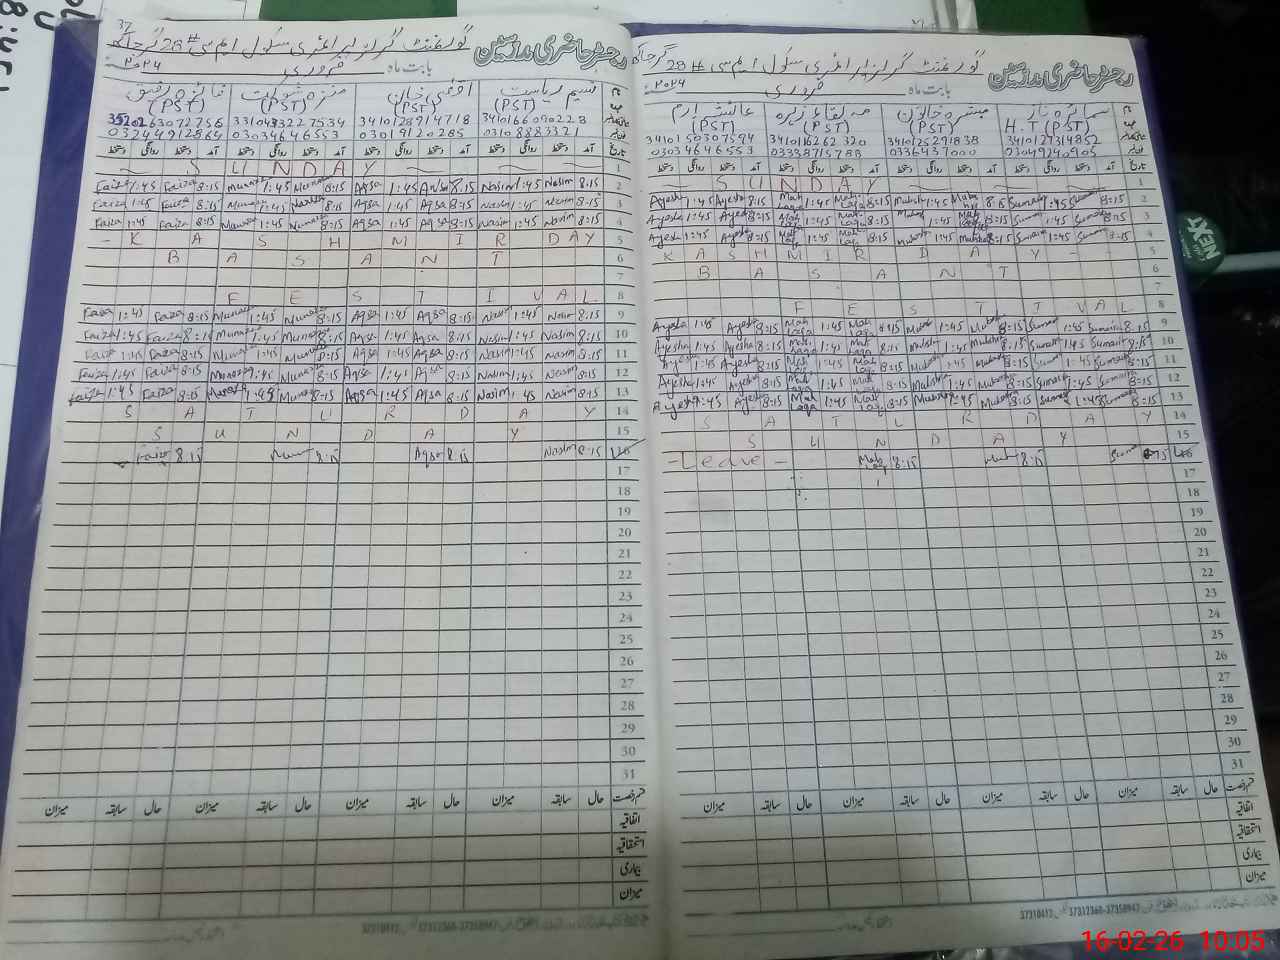 37
گورنمنٹ گرلز پرائمری سکول ایم سی #28 گرجاکھ رجسٹر حاضری مدرسین
بابت ماہ فروری
نسیم ریاست اقصٰی خان منزہ شوکت فائزہ رفیق
(PST) (PST) (PST) (PST)
3310433227534 3410128914718 3410166090228
03244912864 03034646553 03019120285 03108883321
تاریخ آمد دستخط روانگی دستخط آمد دستخط روانگی دستخط آمد دستخط روانگی دستخط آمد دستخط روانگی دستخط
SUNDAY 1
Faiza 1:45 Faiza 8:15 Muna 1:45 Muna 8:15 Aqsa 1:45 Aqsa 8:15 Nasim 1:45 Nasim 8:15 2
Faiza 1:45 Faiza 8:15 Muna 1:45 8:15 Aqsa 1:45 Aqsa 8:15 Nasim 1:45 Nasim 8:15 3
Faiza 1:45 Faiza 8:15 Muna 1:45 Muna 8:15 Aqsa 1:45 Aqsa 8:15 Nasim 1:45 Nasim 8:15 4
- KASHMIR DAY 5
BASANT 6
7
FESTIVAL 8
Faiza 1:45 Faiza 8:15 Muna 1:45 Muna 8:15 Aqsa 1:45 Aqsa 8:15 Nasim 1:45 Nasim 8:15 9
Faiza 1:45 Faiza 8:15 Muna 1:45 Muna 8:15 Aqsa 1:45 Aqsa 8:15 Nasim 1:45 Nasim 8:15 10
Faiza 1:45 Faiza 8:15 Muna 1:45 Muna 8:15 Aqsa 1:45 Aqsa 8:15 Nasim 1:45 Nasim 8:15 11
Faiza 1:45 Faiza 8:15 Muna 1:45 Muna 8:15 Aqsa 1:45 Aqsa 8:15 Nasim 1:45 Nasim 8:15 12
Faiza 1:45 Faiza 8:15 1:45 Muna 8:15 Aqsa 1:45 Aqsa 8:15 Nasim 1:45 Nasim 8:15 13
SATURDAY 14
SUNDAY 15
Faiza 8:15 Muna 8:15 Aqsa 8:15 Nasim 8:15 16
17
18
19
20
21
22
23
24
25
26
27
28
29
30
31
قسم رخصت حال سابقہ میزان حال سابقہ میزان حال سابقہ میزان حال سابقہ میزان
اتفاقیہ
استحقاقیہ
بیماری
میزان
37310412 37312360-37358947
گورنمنٹ گرلز پرائمری سکول ایم سی #28 گرجاکھ رجسٹر حاضری مدرسین
بابت ماہ فروری
سمائرہ ناز مبشرہ خاتون مہ لقاء زہرہ عائشہ ارم
H.T (PST) (PST) (PST) (PST)
3410150307594 3410116262320 3410125291838 3410127314852
03034646553 03338715788 0336437000 03049240905
تاریخ آمد دستخط روانگی دستخط آمد دستخط روانگی دستخط آمد دستخط روانگی دستخط آمد دستخط روانگی دستخط
SUNDAY 1
Ayesha 1:45 Ayesha 8:15 Mah Laqa 1:45 Mah Laqa 8:15 Mubsh 1:45 Mubsh 8:15 Sumaira 1:45 Sumaira 8:15 2
Ayesha 1:45 Ayesha 8:15 Mah Laqa 1:45 Mah Laqa 8:15 Mubsh 1:45 Mubsh 8:15 Sumaira 1:45 Sumaira 8:15 3
Ayesha 1:45 Ayesha 8:15 Mah Laqa 1:45 Mah Laqa 8:15 Mubsh 1:45 Mubsh 8:15 Sumaira 1:45 Sumaira 8:15 4
KASHMIR DAY - - 5
BASANT 6
7
FESTIVAL 8
Ayesha 1:45 Ayesha 8:15 Mah Laqa 1:45 Mah Laqa 8:15 Mubsh 1:45 Mubsh 8:15 Sumaira 1:45 Sumaira 8:15 9
Ayesha 1:45 Ayesha 8:15 Mah Laqa 1:45 Mah Laqa 8:15 Mubsh 1:45 Mubsh 8:15 Sumaira 1:45 Sumaira 8:15 10
Ayesha 1:45 Ayesha 8:15 Mah Laqa 1:45 Mah Laqa 8:15 Mubsh 1:45 Mubsh 8:15 Sumaira 1:45 Sumaira 8:15 11
Ayesha 1:45 Ayesha 8:15 Mah Laqa 1:45 Mah Laqa 8:15 Mubsh 1:45 Mubsh 8:15 Sumaira 1:45 Sumaira 8:15 12
Ayesha 1:45 Ayesha 8:15 Mah Laqa 1:45 Mah Laqa 8:15 Mubsh 1:45 Mubsh 8:15 Sumaira 1:45 Sumaira 8:15 13
SATURDAY 14
SUNDAY 15
- Leave - Mah Laqa 8:15 Mub 8:15 Sumaira 8:15 16
17
18
19
20
21
22
23
24
25
26
27
28
29
30
31
قسم رخصت حال سابقہ میزان حال سابقہ میزان حال سابقہ میزان حال سابقہ میزان
اتفاقیہ
استحقاقیہ
بیماری
میزان
37310412 37312360-37358947
NEXT
16-02-26 10.05